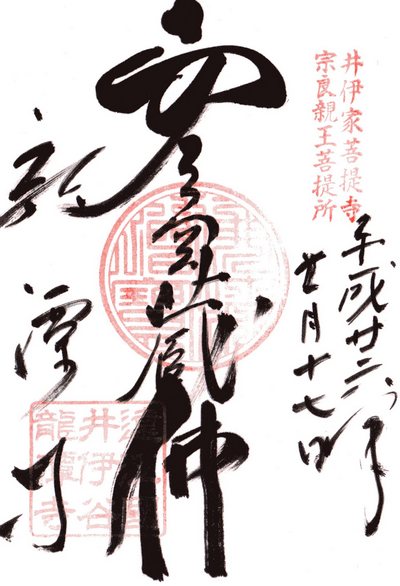 井伊家菩提寺
宗良親王菩提所
平成廿二年
月十七日
虚空蔵仏
龍潭寺
井伊谷
龍潭寺